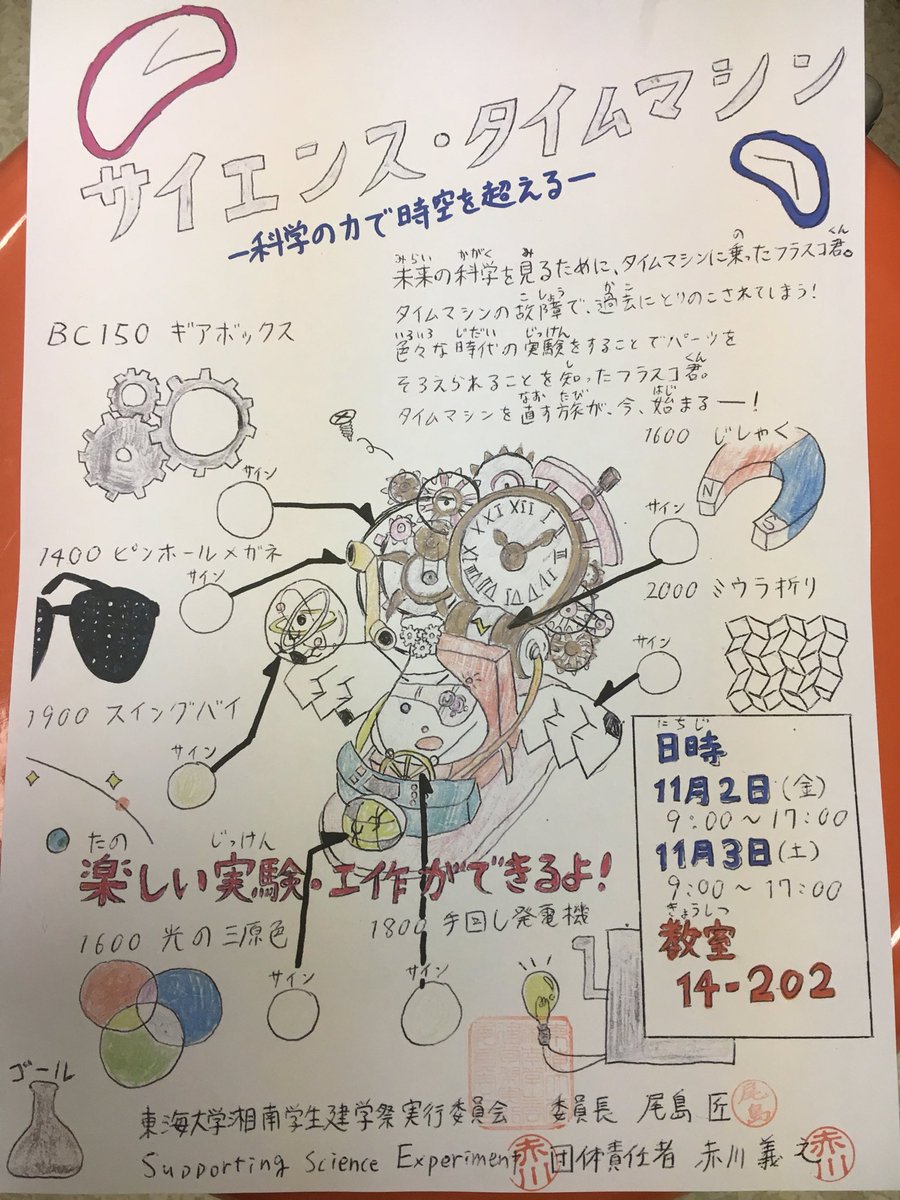 サイエンス・タイムマシン
ー科学の力で時空を超えるー
みらい かがく み の くん
未来の科学を見るために、タイムマシンに乗ったフラスコ君。
こしょう かこ
タイムマシンの故障で、過去にとりのこされてしまう!
いろいろ じだい じっけん
色々な時代の実験をすることでパーツを
し くん
そろえられることを知ったフラスコ君。
なお たび はじ
タイムマシンを直す旅が、今、始まるー!
BC150 ギアボックス
サイン
1600 じしゃく
N
S
サイン
1400 ピンホールメガネ
サイン
2000 ミウラ折り
サイン
XII I II III IIII V VI VII VIII IX X XI
1900 スイングバイ
サイン
にちじ
日時
11月2日(金)
9:00~17:00
11月3日(土)
9:00~17:00
きょうしつ
教室
14-202
たの じっけん
楽しい実験・工作ができるよ!
1600 光の三原色
サイン
1800 手回し発電機
サイン
ゴール
東海大学湘南学生建学祭実行委員会 委員長 尾島 匠 尾島
Supporting Science Experiment 赤川 団体責任者 赤川義之 赤川